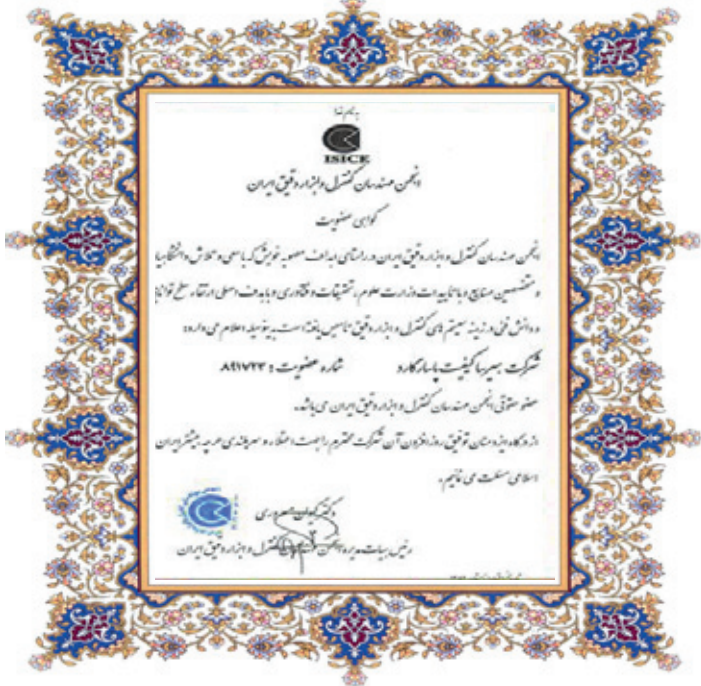 بنام خدا
ISICE
انجمن مهندسان کنترل و ابزار دقیق ایران
گواهی عضویت
انجمن مهندسان کنترل و ابزار دقیق ایران در راستای اهداف مصوبه خویش که با سعی و تلاش دانشگاهیا
و متخصصین صنایع و با تاییدات وزارت علوم، تحقیقات و فناوری و با هدف اصلی ارتقاء سطح توانا
و دانش فنی در زمینه سیستم های کنترل و ابزار دقیق تاسیس یافته است بدینوسیله اعلام می دارد:
شرکت بهین کیفیت پاسارگارد شماره عضویت: ۸۹۱۷۲۳
عضو حقوقی انجمن مهندسان کنترل و ابزار دقیق ایران می باشد.
از درگاه ایزد منان توفیق روزافزون آن شرکت محترم را جهت اعتلاء و سربلندی هر چه بیشتر ایران
اسلامی مسئلت می نمائیم.
دکتر
رئیس هیات مدیره انجمن مهندسان کنترل و ابزار دقیق ایران